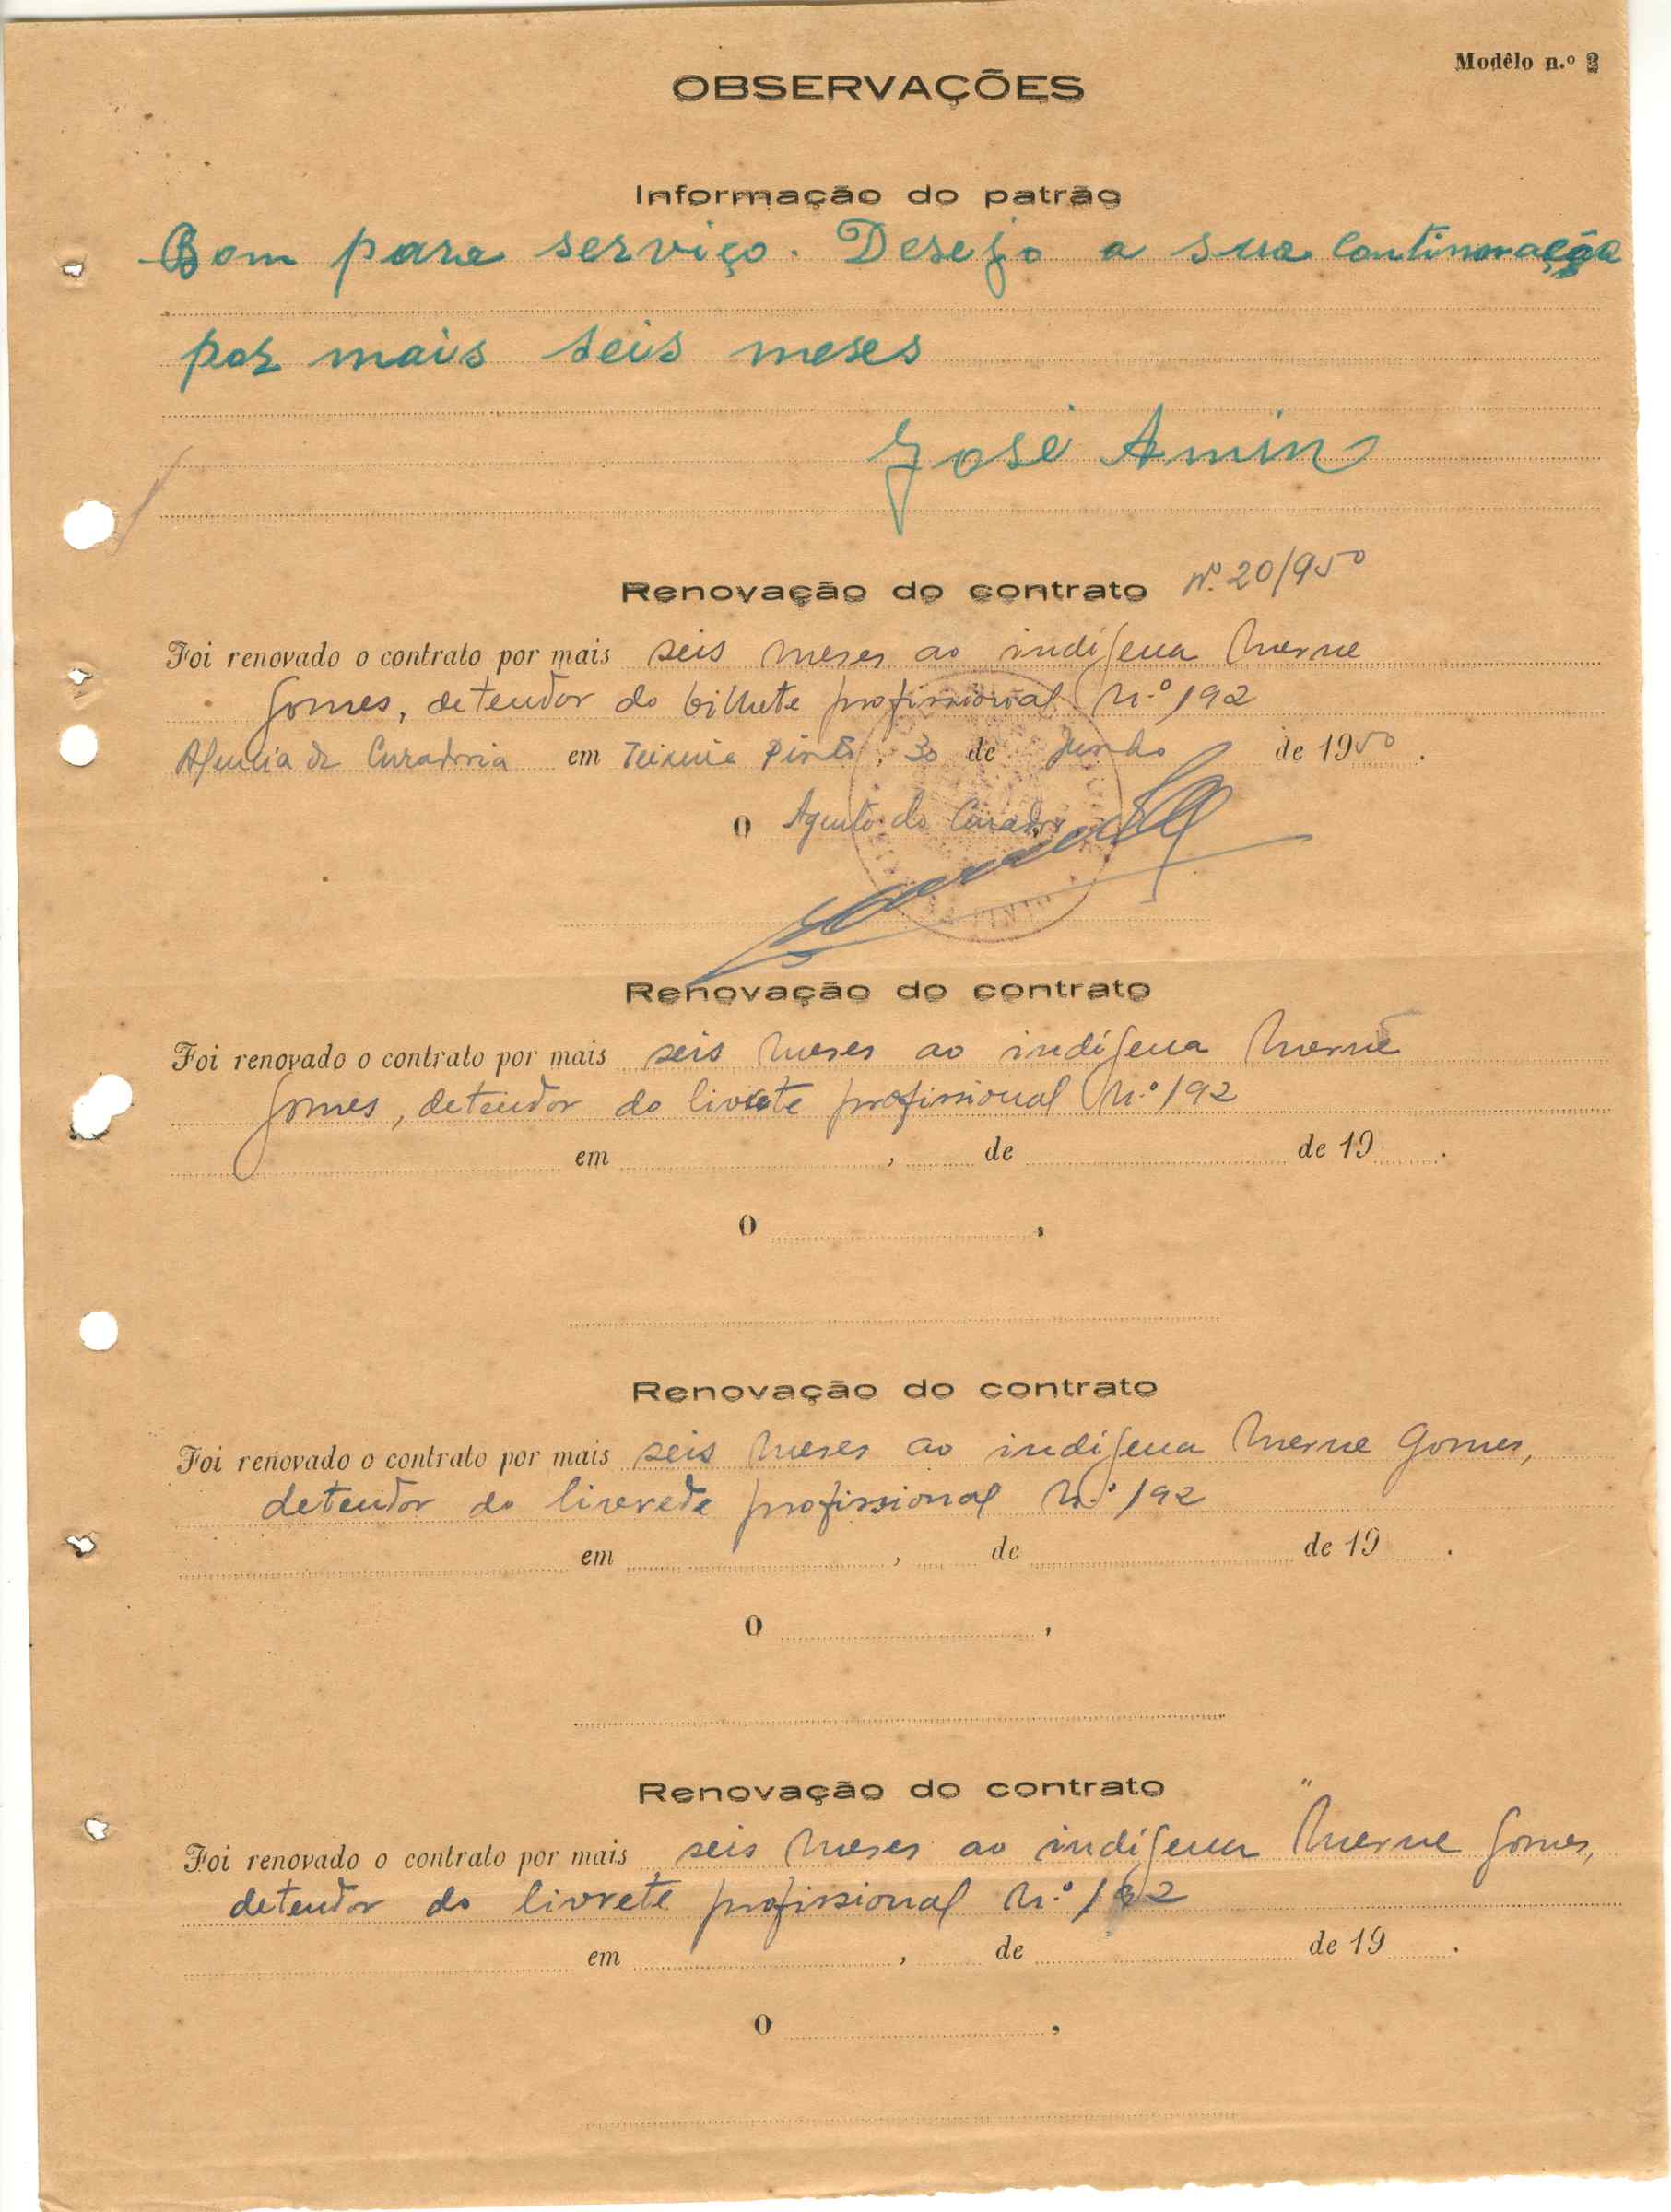 Modêlo n.º 2
OBSERVAÇÕES
Informação do patrão
Bom para serviço. Desejo a sua continuação
por mais seis meses
José Amin
Renovação do contrato Nº 20/950
Foi renovado o contrato por mais seis meses ao indígena Merne
Gomes, detendor do bilhete profissional N.º 192
Agencia da Curadoria em Teixeira Pinto, 30 de Junho de 1950.
O Agente do Curador
PINTO
Renovação do contrato
Foi renovado o contrato por mais seis meses ao indígena Merne
Gomes, detendor do livrete profissional N.º 192
em , de de 19 .
O ,
Renovação do contrato
Foi renovado o contrato por mais seis meses ao indígena Merne Gomes,
detendor do livrete profissional N.º 192
em , de de 19 .
O ,
Renovação do contrato
Foi renovado o contrato por mais seis meses ao indígena Merne Gomes,
detendor do livrete profissional N.º 192
em , de de 19 .
O ,